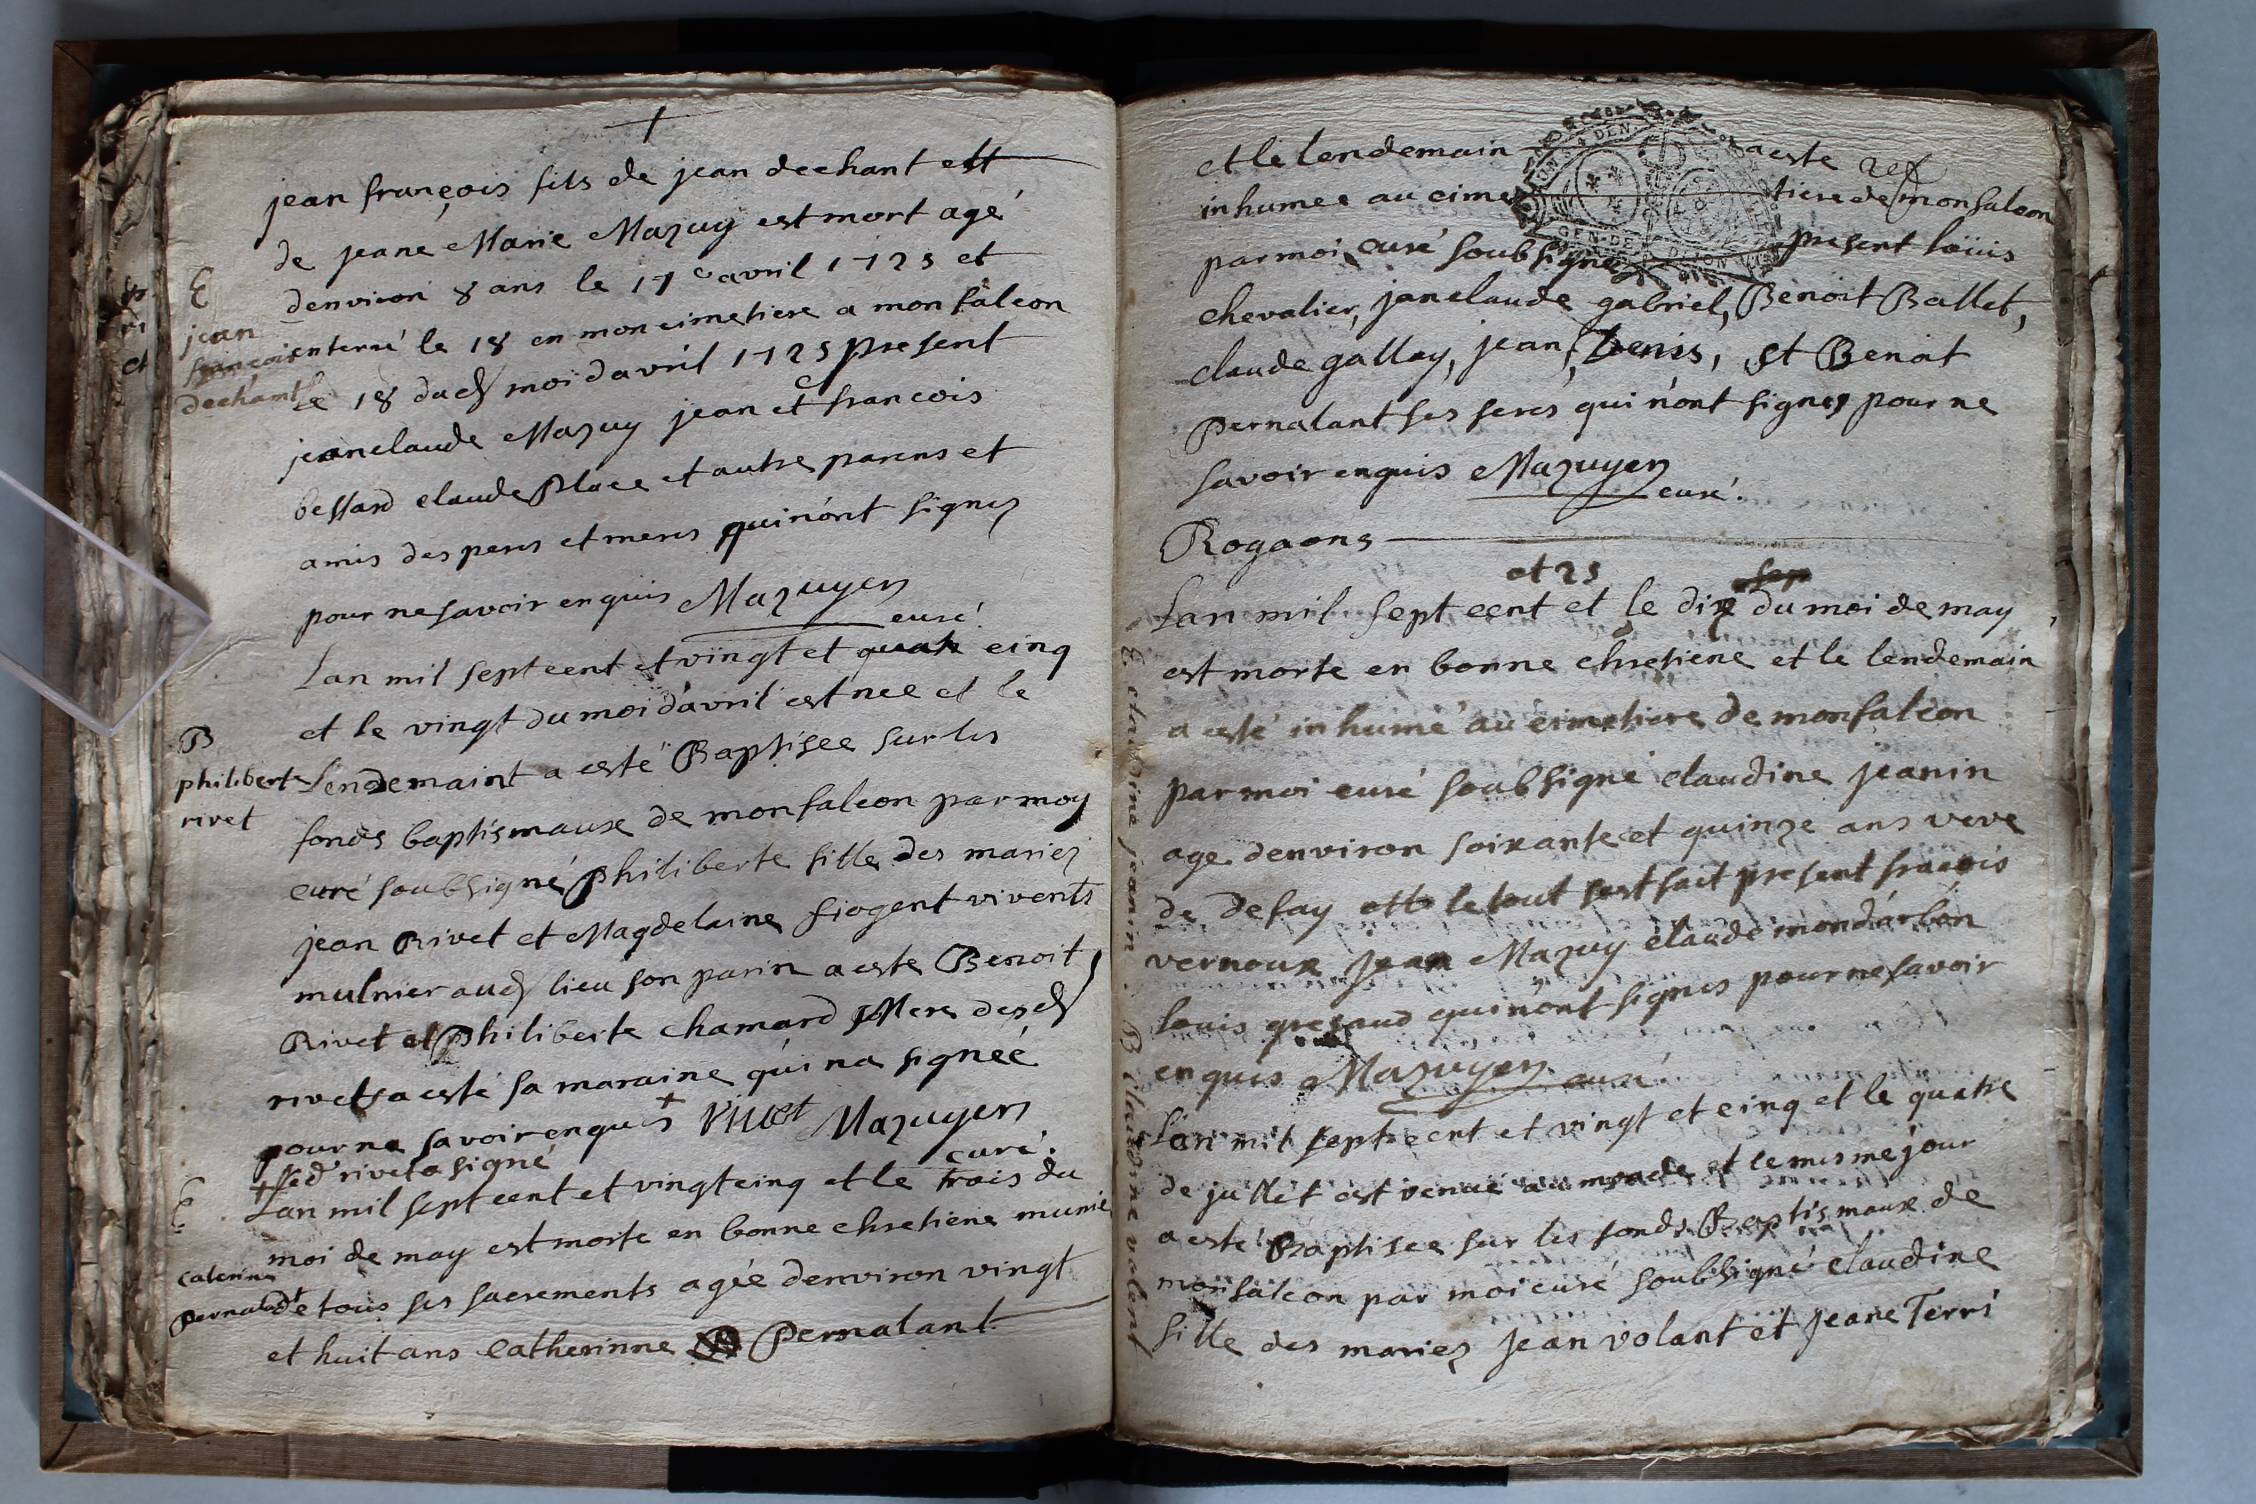 jean françois fils de jean dechant ett
de jeane Marie Mazuy est mort agé
denviron 8 ans le 17e avril 1725 et
E
jean
françois
dechant
enterré le 18 en mon cimetiere a monfalcon
le 18 dud moi davril 1725 present
jeanclaude Mazuy jean et francois
bessard claude Place et autre parens et
amis des peres et meres qui n'ont signez
pour ne savoir enquis Mazuyer
curé
Lan mil sept cent et vingt et quatr cinq
et le vingt du moi davril est nee et le
B
philiberte
rivet
lendemaint a esté Baptisee sur les
fonds baptismaux de monfalcon par moy
curé soubsigné philiberte fille des mariez
jean Rivet et Magdelaine fiogent vivents
mulnier aud lieu son parin a este Benoit
Rivet et Philiberte chamard Mere desd
rivets a esté sa maraine qui na signeé
pour ne savoir enquis + rivet Mazuyer
curé.
+ led rivet a signé
E
Caterine
Pernalant
Lan mil sept cent et vingt cinq et le trois du
moi de may est morte en bonne chretiene munie
de tous ses sacrements agée denviron vingt
et huit ans Catherinne Pernalant
et le lendemain a este
inhumee au cimetiere de monfalcon
par moi curé soubsigné present loüis
chevalier, janclaude gabriel, Benoit Ballet,
claude gallay, jean, Denis, et Benoit
Pernalant ses feres qui n'ont signez pour ne
savoir enquis Mazuyer
curé.
Rogaons
et 25
Lan mil sept cent et le dix du moi de may
est morte en bonne chretiene et le lendemain
a esté inhumé au cimetiere de monfalcon
par moi curé soubsigné claudine jeanin
age denviron soixante et quinze ans veve
de defay le tout sest fait present fracois
vernoux jean Mazuy claude mondarbon
louis grezaud qui n'ont signes pour ne savoir
enquis Mazuyer curé
E claudine jeanin
B claudine volent
Lan mil sept cent et vingt et cinq et le quatre
de jullet est venue au monde et le mesme jour
a esté Baptisee sur les fonds Baptismaux de
monfalcon par moi curé soubsigné claudine
fille des mariez jean volant et jeane Terri